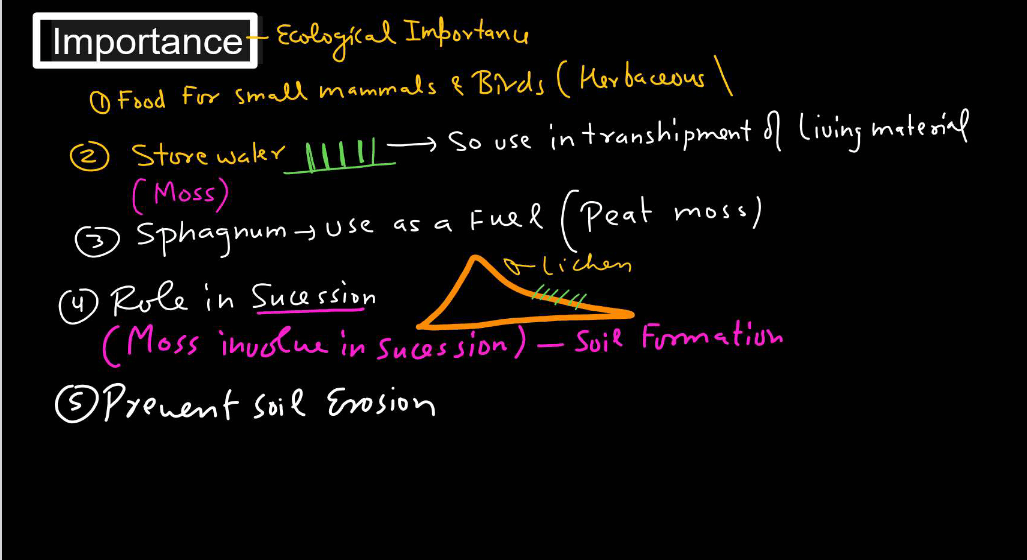 Importance - Ecological Importance
① Food For small mammals & Birds (Herbaceous \
② Store water → So use in transhipment of living material
(Moss)
③ Sphagnum → use as a Fuel (Peat moss)
Lichen
④ Role in Sucession
(Moss involve in sucession) - Soil Formation
⑤ Prevent soil Erosion